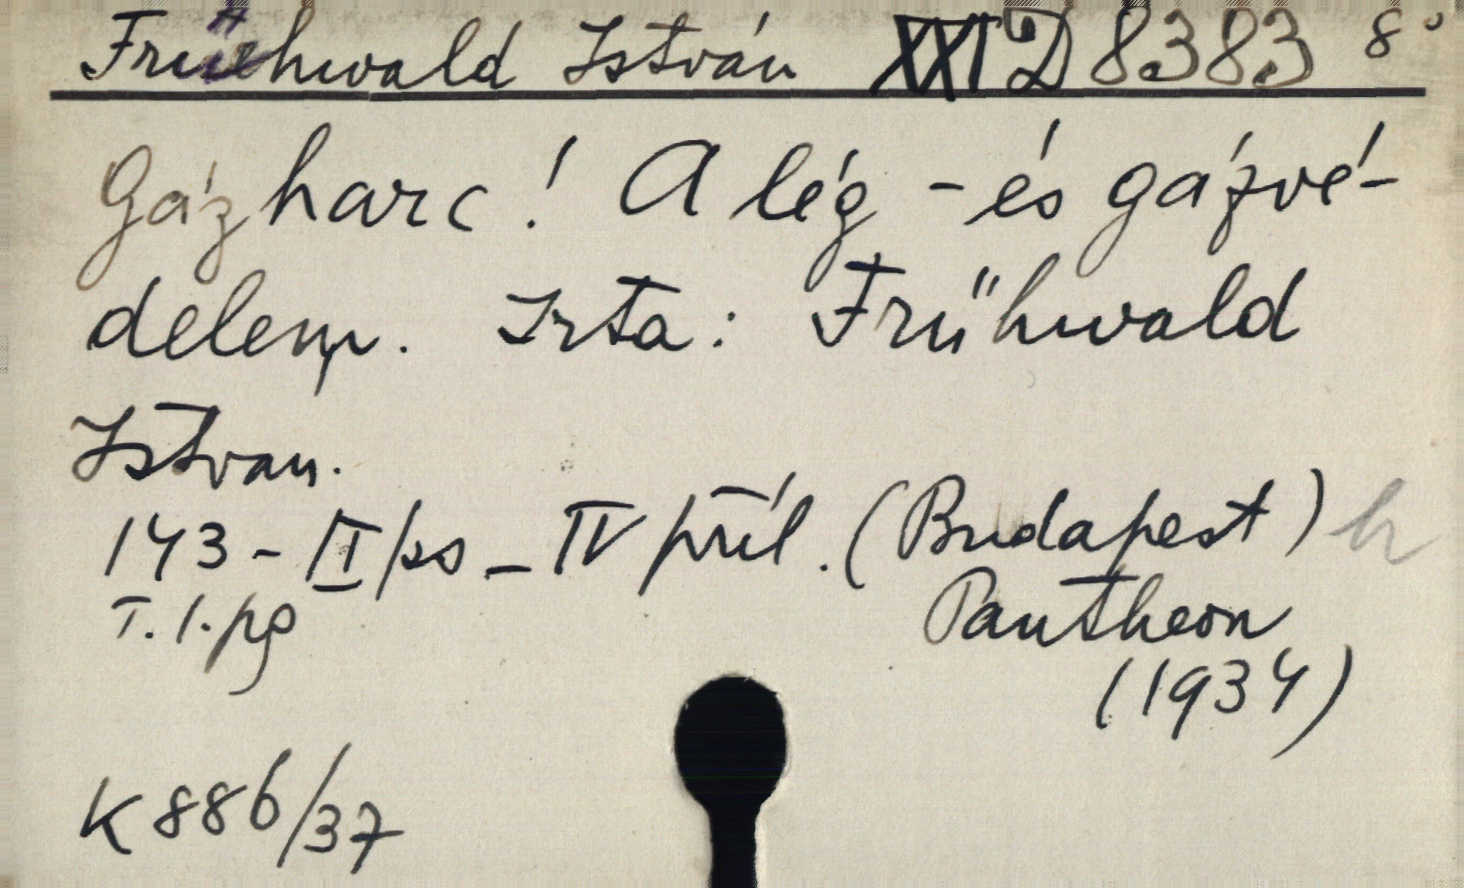 Frühwald István XXI D 8383 8°
Gázharc! A lég - és gázvé-
delem. Irta: Frühwald
István.
143 - II/ss - IV příl. (Budapest)
Pantheon
T. l. pg
(1934)
K 886/37